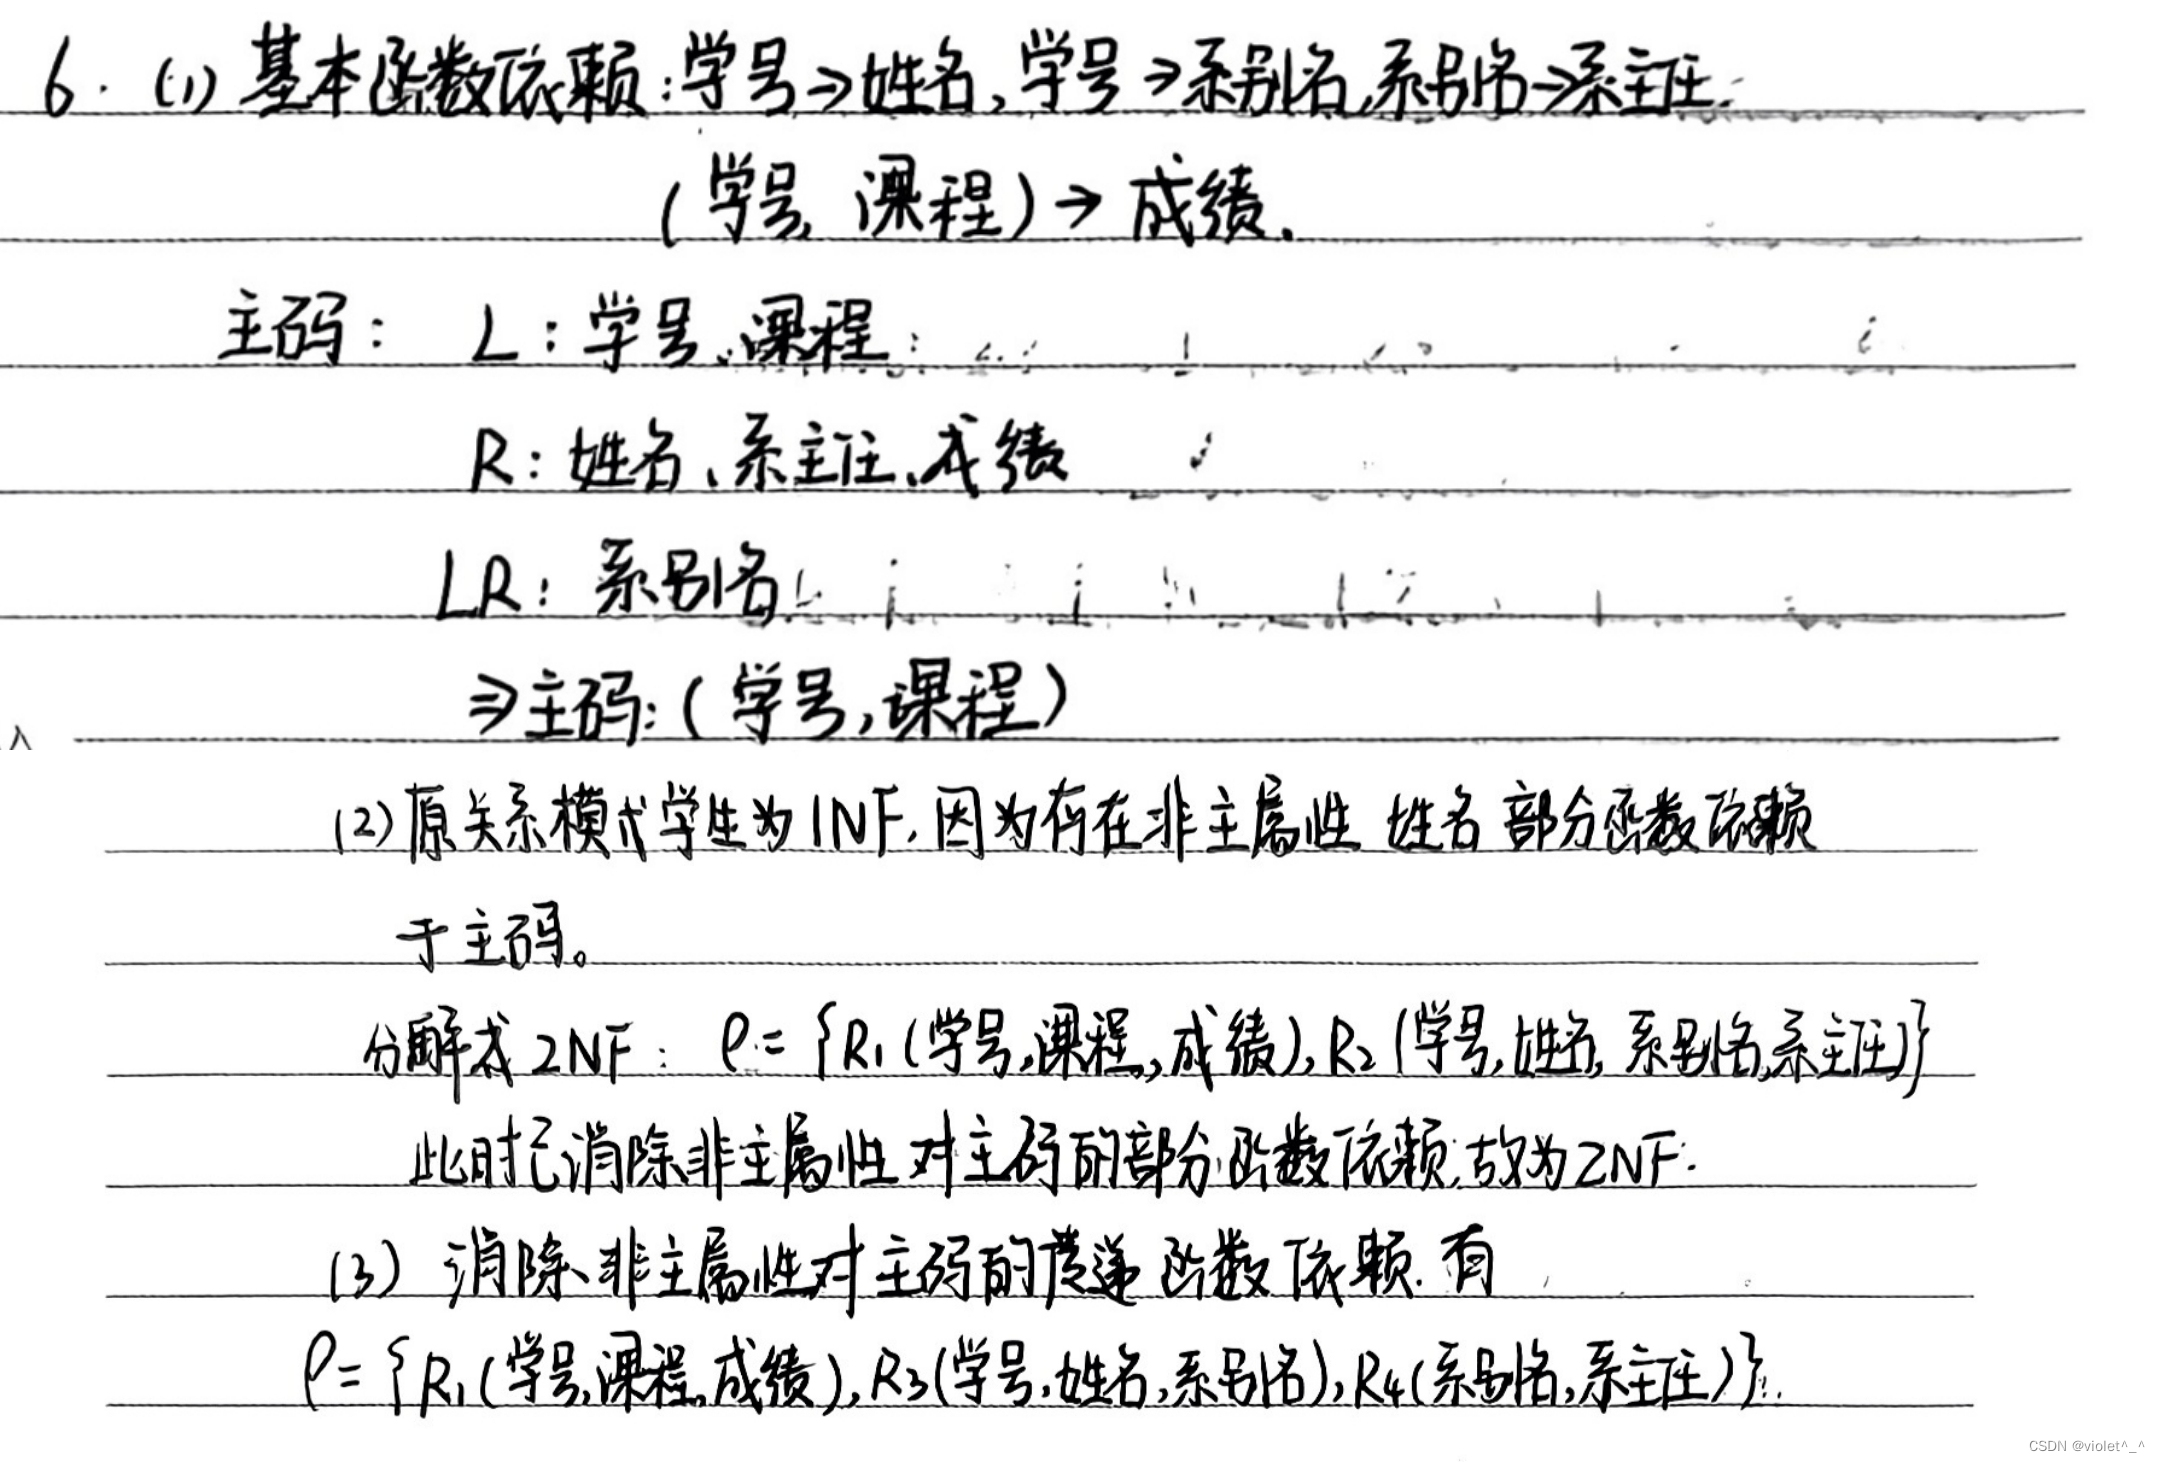 6. (1) 基本函数依赖:学号→姓名,学号→系别名,系别名→系主任.
(学号, 课程)→成绩.
主码: L:学号、课程
R:姓名、系主任、成绩
LR:系别名
⇒主码:(学号,课程)
(2)原关系模式学生为1NF,因为存在非主属性 姓名 部分函数依赖
于主码。
分解成2NF: ρ={R₁(学号,课程,成绩),R₂(学号,姓名,系别名,系主任)}
此时已消除非主属性对主码的部分函数依赖,故为2NF.
(3) 消除非主属性对主码的传递函数依赖.有
ρ={R₁(学号,课程,成绩),R₃(学号,姓名,系别名),R₄(系别名,系主任)}.
CSDN @violet^_^